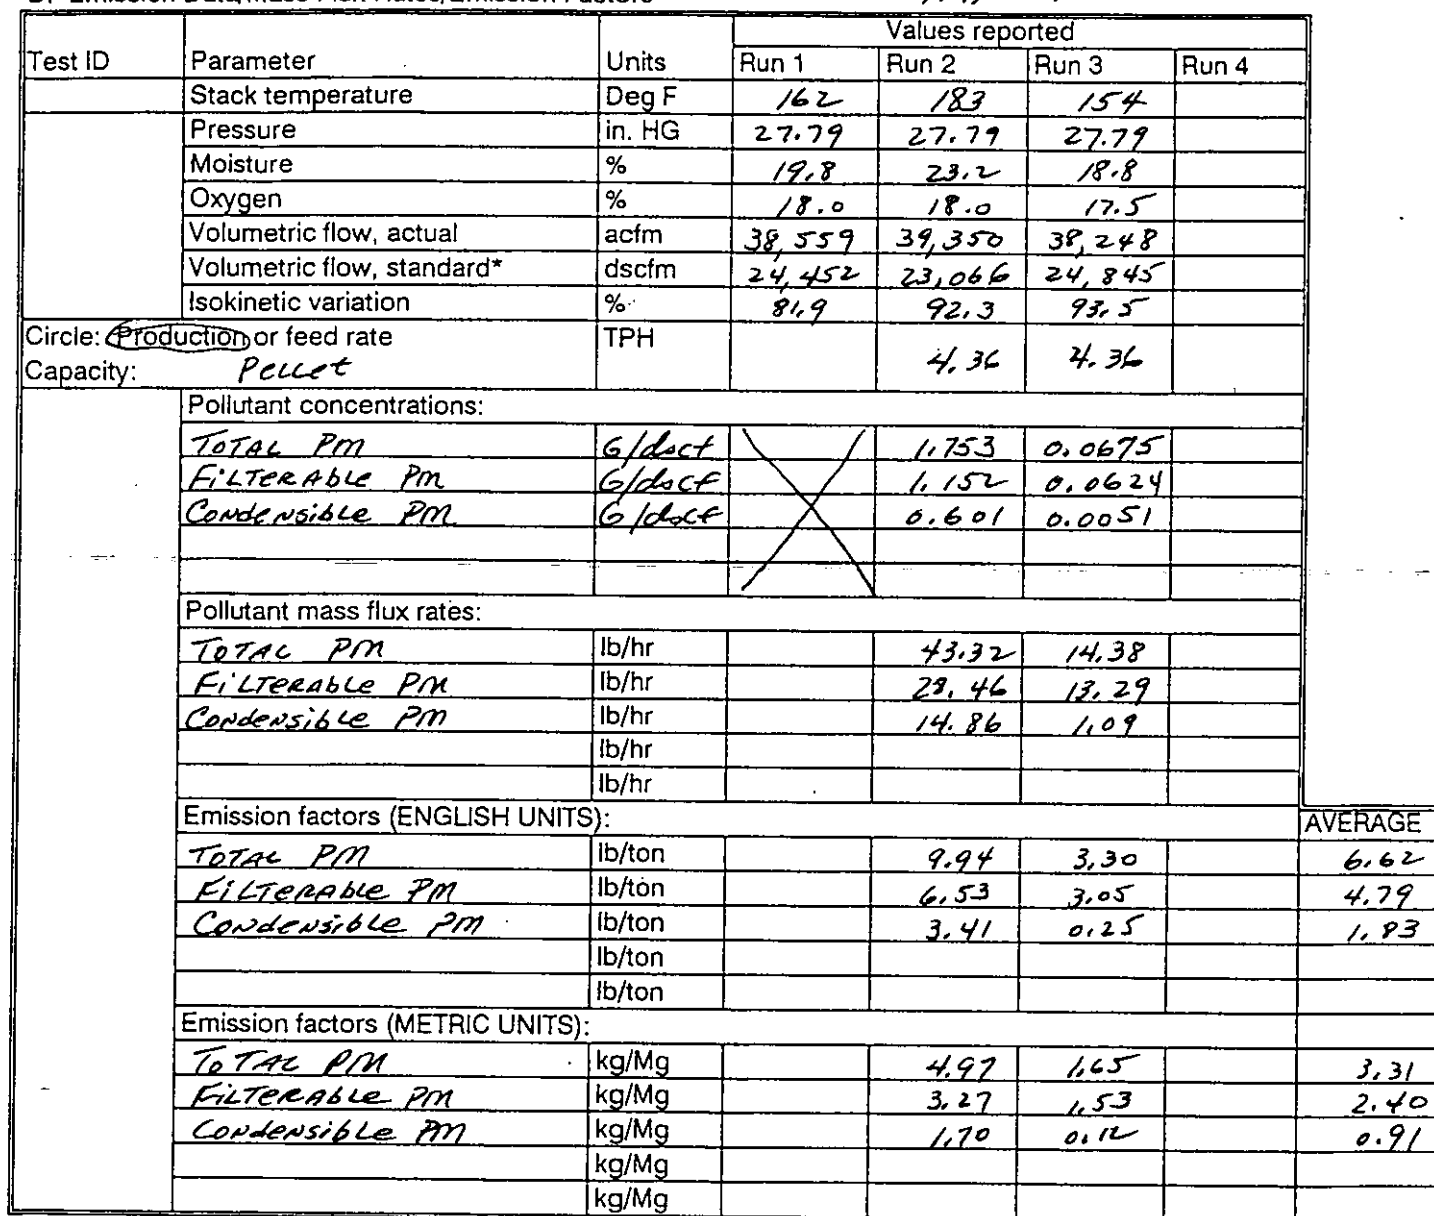 Values reported
Test ID Parameter Units Run 1 Run 2 Run 3 Run 4
Stack temperature Deg F 162 183 154
Pressure in. HG 27.79 27.79 27.79
Moisture % 19.8 23.2 18.8
Oxygen % 18.0 18.0 17.5
Volumetric flow, actual acfm 38,559 39,350 38,248
Volumetric flow, standard* dscfm 24,452 23,066 24,845
Isokinetic variation % 81.9 92.3 93.5
Circle: Production or feed rate TPH 4.36 4.36
Capacity: Pellet
Pollutant concentrations:
TOTAL PM G/dscf 1.753 0.0675
FILTERABLE PM G/dscf 1.152 0.0624
Condensible PM G/dscf 0.601 0.0051
Pollutant mass flux rates:
TOTAL PM lb/hr 43.32 14.38
FILTERABLE PM lb/hr 28.46 13.29
Condensible PM lb/hr 14.86 1.09
lb/hr
lb/hr
Emission factors (ENGLISH UNITS): AVERAGE
TOTAL PM lb/ton 9.94 3.30 6.62
FILTERABLE PM lb/ton 6.53 3.05 4.79
Condensible PM lb/ton 3.41 0.25 1.83
lb/ton
lb/ton
Emission factors (METRIC UNITS):
TOTAL PM kg/Mg 4.97 1.65 3.31
FILTERABLE PM kg/Mg 3.27 1.53 2.40
Condensible PM kg/Mg 1.70 0.12 0.91
kg/Mg
kg/Mg